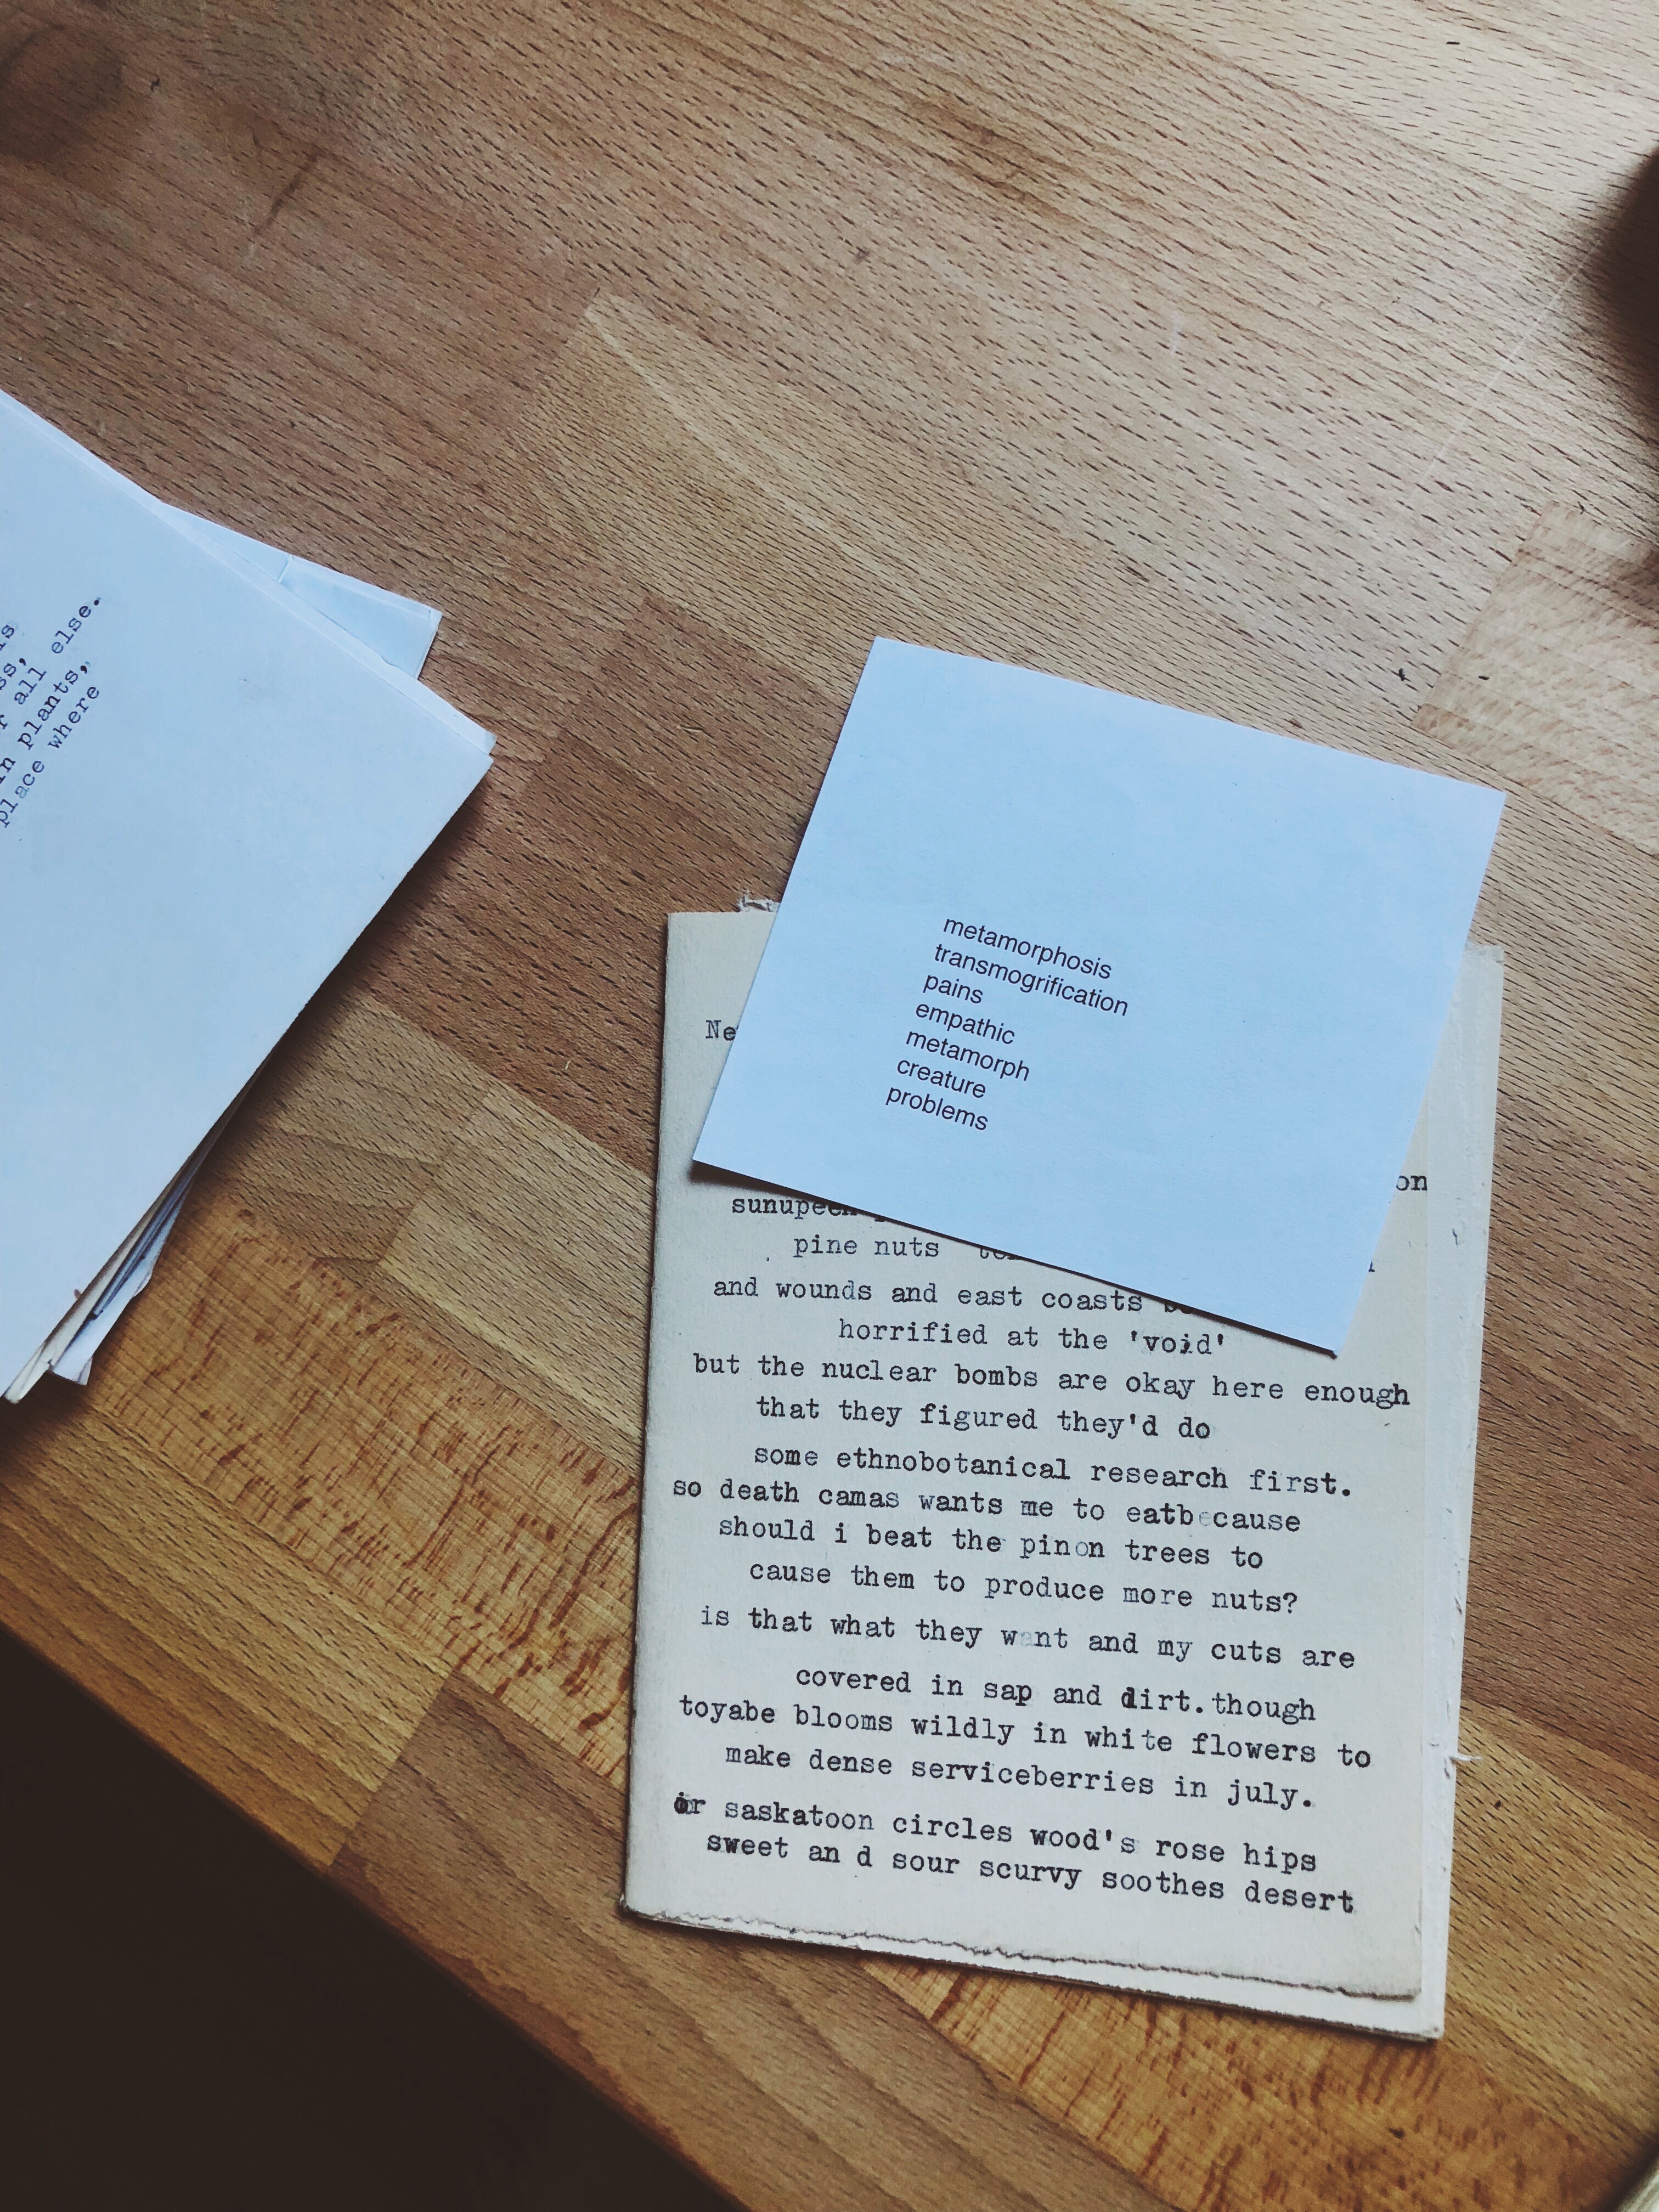 else.
all
plants,
place where
metamorphosis
transmogrification
pains
empathic
metamorph
creature
problems
pine nuts
and wounds and east coasts
horrified at the 'void'
but the nuclear bombs are okay here enough
that they figured they'd do
some ethnobotanical research first.
so death camas wants me to eatbecause
should i beat the pinon trees to
cause them to produce more nuts?
is that what they want and my cuts are
covered in sap and dirt.though
toyabe blooms wildly in white flowers to
make dense serviceberries in july.
or saskatoon circles wood's rose hips
sweet an d sour scurvy soothes desert